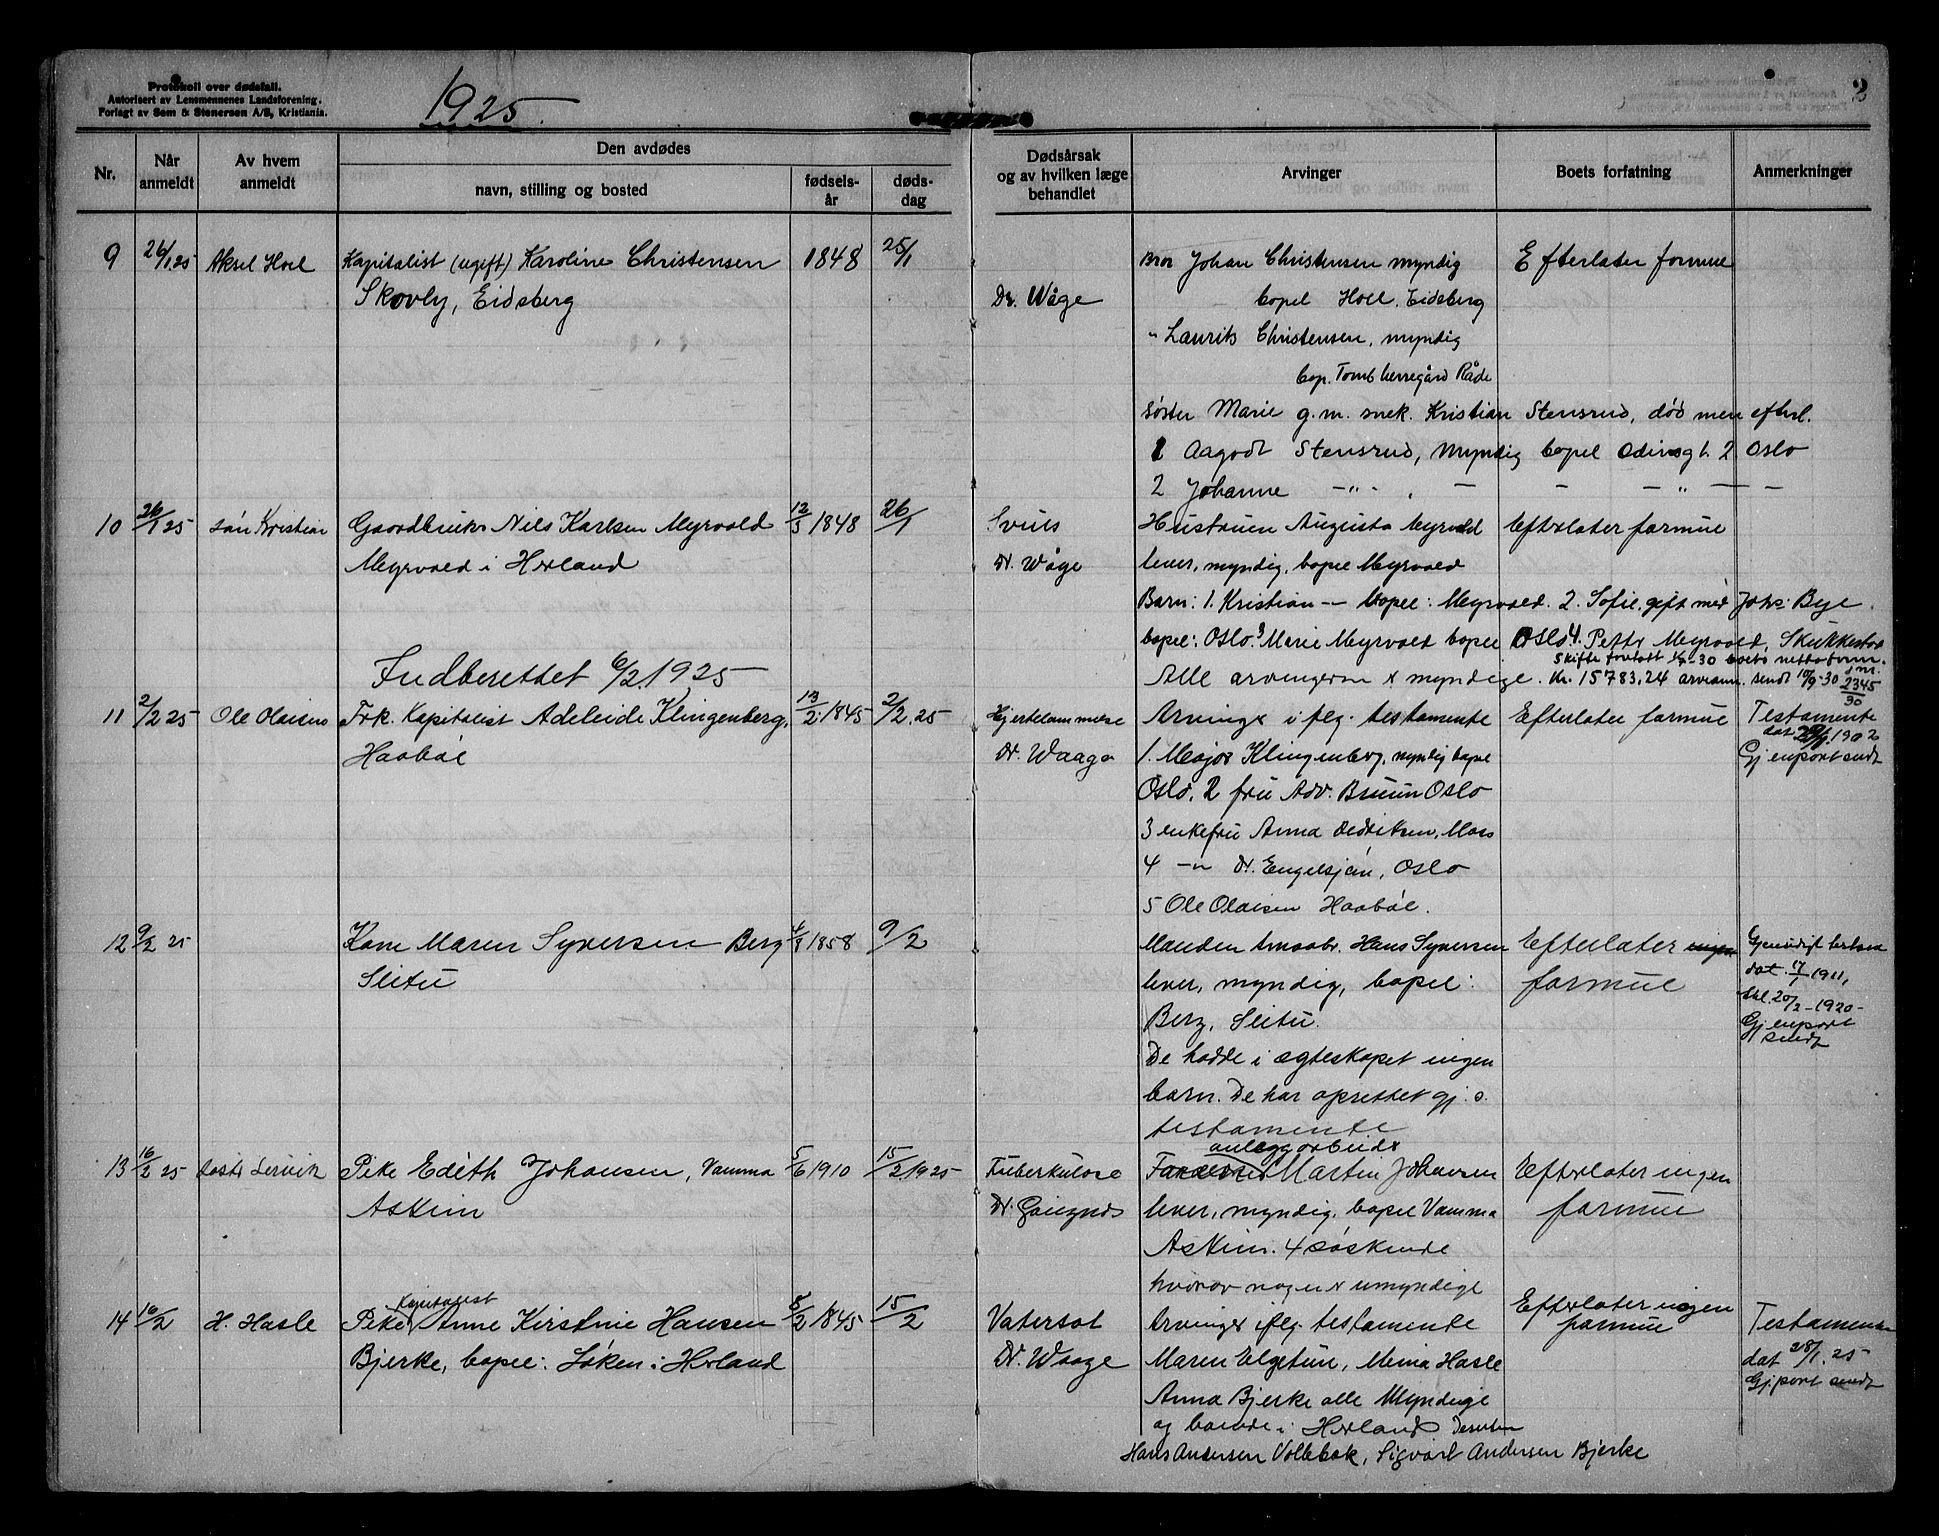 Protokoll over dødsfall.
Autorisert av Lensmennenes Landsforening.
Forlagt av Sem & Stenersen A/S, Kristiania.
1925.
2
Nr.
Når anmeldt
Av hvem anmeldt
Den avdødes
navn, stilling og bosted
fødsels-år
døds-dag
Dødsårsak og av hvilken læge behandlet
Arvinger
Boets forfatning
Anmerkninger
9 26/1 25 Aksel Hoel Kapitalist (ugift) Karoline Christensen 1848 25/1 Bror Johan Christensen myndig Efterlater formue
Skovly, Eidsberg Dr. Wåge bopel Hoel, Eidsberg
" Laurits Christensen, myndig
bop. Tomb herregård Råde
Søster Marie g.m. snek. Kristian Stensrud, død men efterl.
1 Aagodt Stensrud, myndig bopel Odinsgt. 2 Oslo
2 Johanne — " — , — — — " — —
10 26/1 25 søn Kristian Gaardbruker Nils Karlsen Myrvold 12/3 1848 26/1 Hustruen Augusta Myrvold Efterlater formue
Myrvold i Herland Dr. Wåge lever, myndig, bopel Myrvold
Barn: 1. Kristian — bopel: Myrvold. 2. Sofie, gift med Johs. Bye.
bopel: Oslo. 3 Marie Myrvold bopel Oslo 4. Petter Myrvold,
Skifte foretatt 1/9-30 boets netto form.
Indberettet 6/2 1925 Alle arvingerne er myndige. Kr. 15783,24 arveanm. sendt 10/9-30 2345/30
11 2/2 25 Ole Olaisen Frk. Kapitalist Adeleide Klingenberg, 13/2 1845 2/2 25 Hjertelammelse Arvinger iflg. testamente Efterlater formue Testamente
Haabøl Dr. Waage 1. Major Klingenberg, myndig bopel dat. 1902
Oslo, 2 fru Adv. Bruun Oslo Gjenpart sendt
3 enkefru Anna Dedriksen, Moss
4 — " Dr. Engelsjøn, Oslo
5 Ole Olaisen Haabøl.
12 9/2 25 Kone Maren Syversen Berg 1858 9/2 Manden Hans Syversen Efterlater ingen Gjensidig testam
Slitu lever, myndig, bopel: formue dat. 17/1 1911,
Berg, Slitu. 20/2 - 1920 -
Gjenpart sendt
De hadde i ægteskapet ingen
barn. De har oprettet gj. s.
testamente
anleggarbeider
13 16/2 25 Pike Edith Johansen, Vamma 5/6 1910 15/2 1925 Tuberkulose Faderen Martin Johansen Efterlater ingen
Askim Dr. lever, myndig, bopel Vamma formue
Askim. 4 søskende
hvorav nogen er umyndige
Kapitalist
14 16/2 H. Hasle Pike Anne Kirstine Hansen 8/2 1845 15/2 Vatersot Arvinger iflg. testamente Efterlater ingen formue Testamente
Bjerke, bopel: Løken i Herland Dr. Waage Maren Elgetun, Mina Hasle dat 28/1. 25
Anna Bjerke alle Myndige Gj.part sendt
og boende i Herland Desuten
Hans Andersen Vollebæk, Sigvart Andersen Bjerke